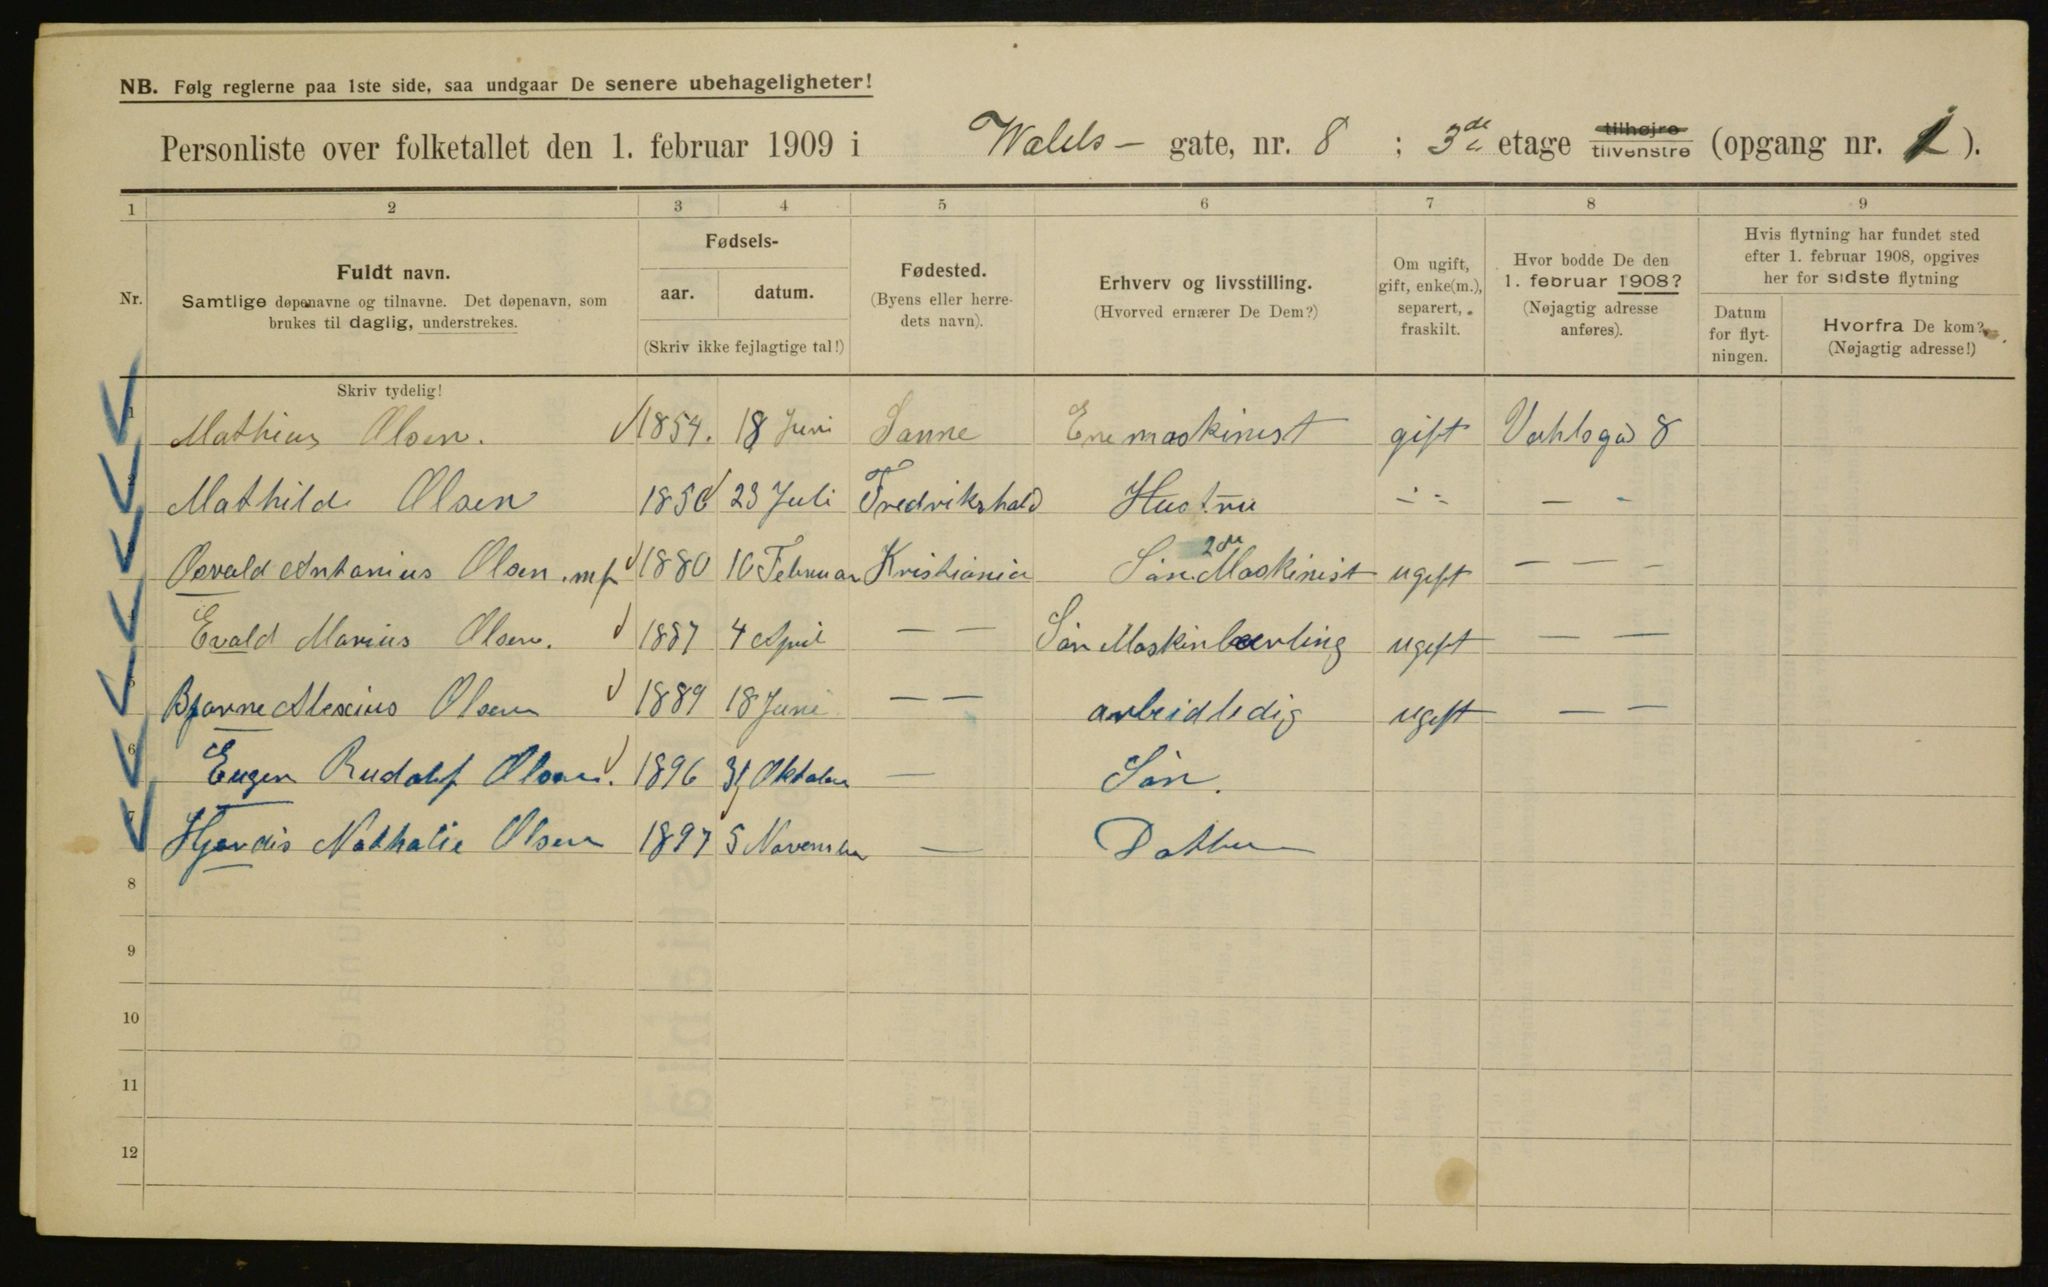 NB. Følg reglerne paa 1ste side, saa undgaar De senere ubehageligheter!
Personliste over folketallet den 1. februar 1909 i Walds- gate, nr. 8 ; 3de etage tilhøjre tilvenstre (opgang nr. ).
1 2 3 4 5 6 7 8 9
Nr. Fuldt navn. Samtlige døpenavne og tilnavne. Det døpenavn, som
brukes til daglig, understrekes.
Fødsels-
aar. datum.
(Skriv ikke fejlagtige tal!)
Fødested.
(Byens eller herre-
dets navn).
Erhverv og livsstilling.
(Hvorved ernærer De Dem?)
Om ugift,
gift, enke(m.),
separert,
fraskilt.
Hvor bodde De den
1. februar 1908?
(Nøjagtig adresse
anføres).
Hvis flytning har fundet sted
efter 1. februar 1908, opgives
her for sidste flytning
Datum
for flyt-
ningen.
Hvorfra De kom?
(Nøjagtig adresse!)
Skriv tydelig!
1 Mathias Olsen. 1854. 18 Juni Sanne maskinist gift Vahlsgd 8
2 Mathilde Olsen 23 Juli Fredrikshald Hustru - - — -
Osvald Antonius Olsen . mp 1880 Februar Kristiania Søn. 2den Maskinist ugift — — —
Evald Marius Olsen. 1887 4 April — — Søn Maskinlærling ugift — —
5 Bjarne Alexius Olsen 1889 18 Juni — — arbeidledig ugift — —
6 Eugen Rudolf Olsen. 1896 31 Oktober — Søn.
7 Hjørdis Nathalie Olsen 1897 5 November — Datter
8
9
10
11
12